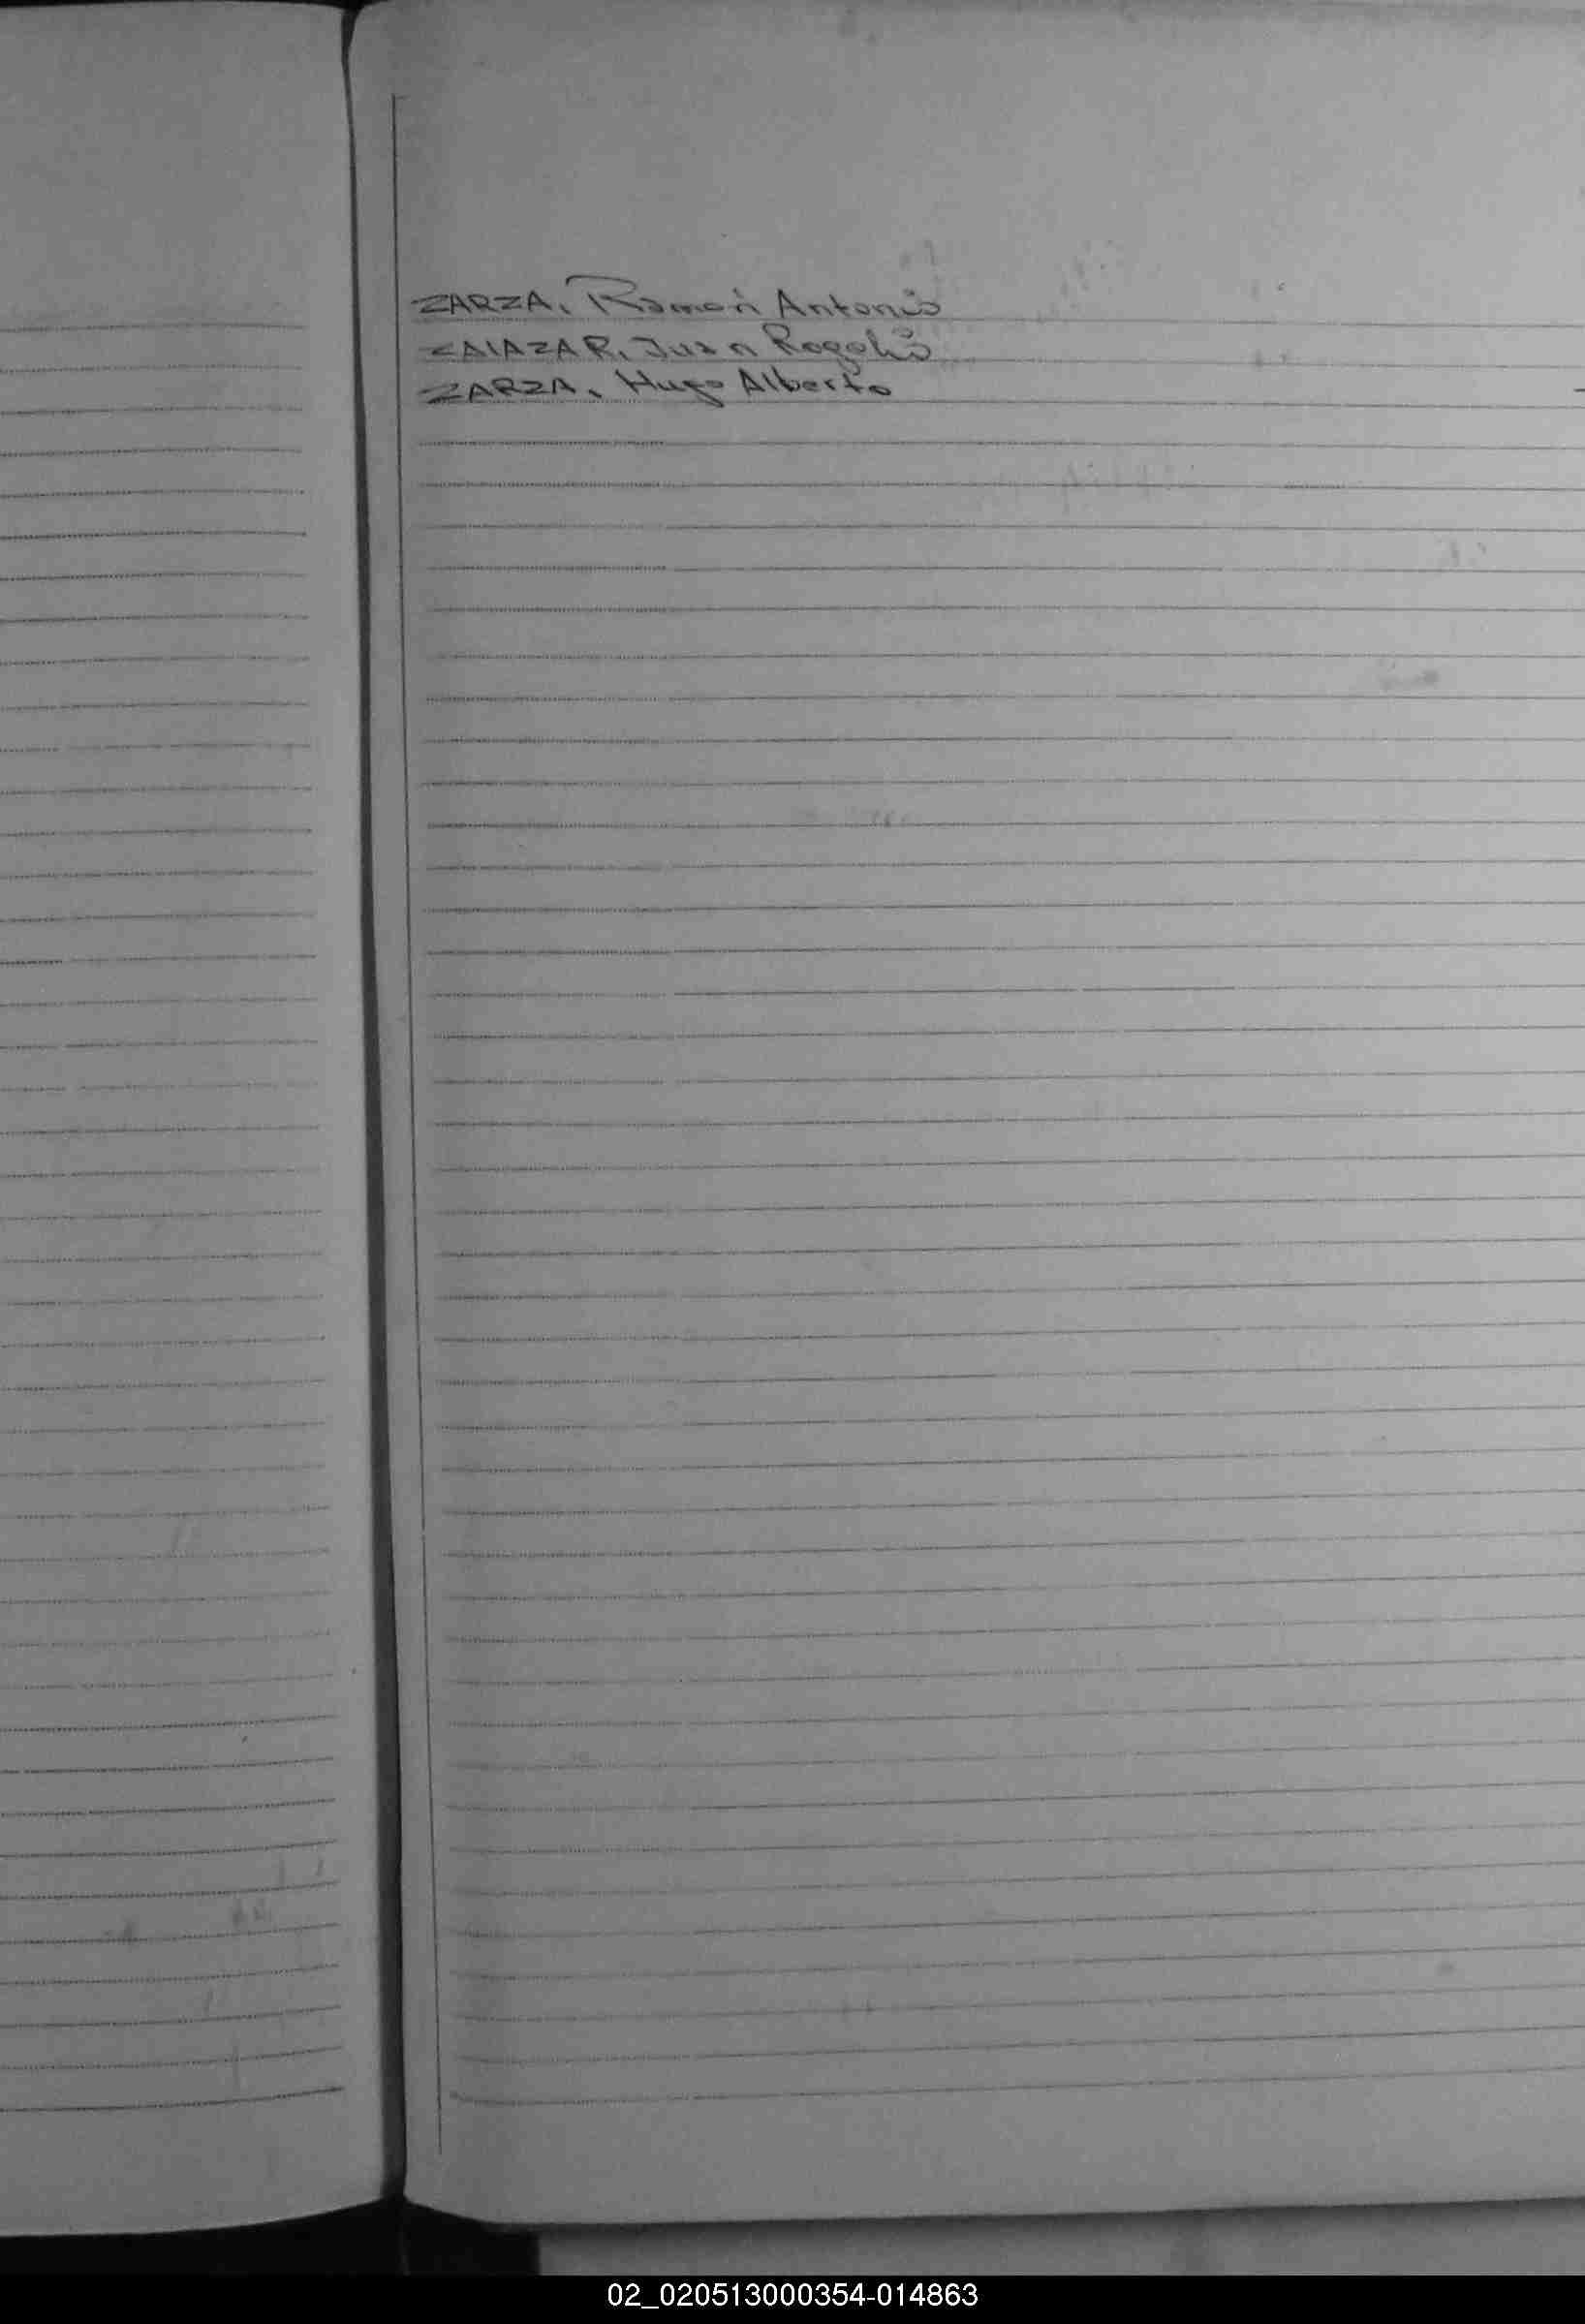 ZARZA, Ramón Antonio
ZALAZAR, Juan Rogelio
ZARZA, Hugo Alberto
02_020513000354-014863